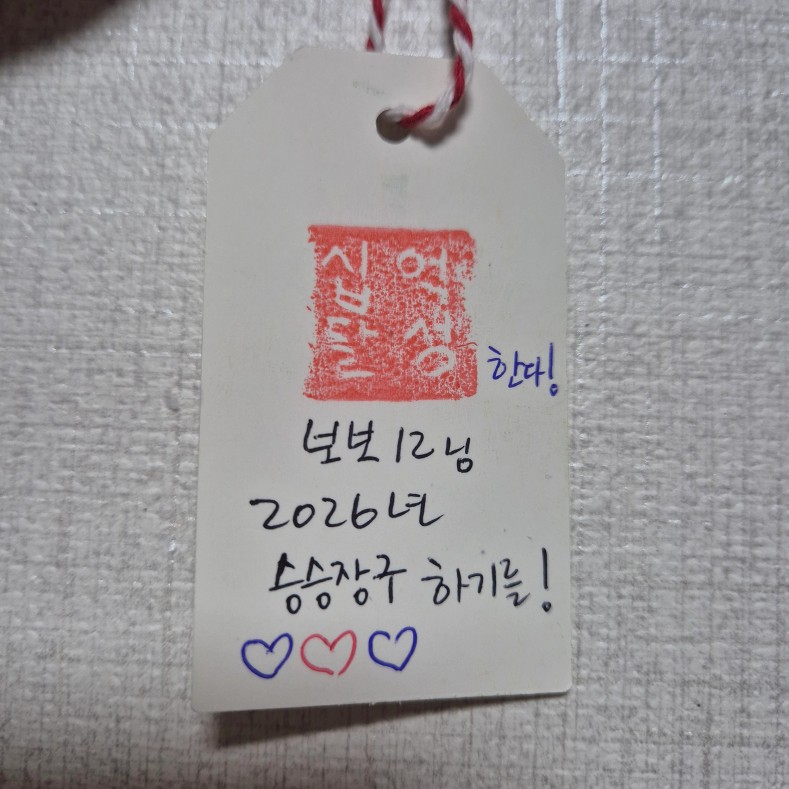 십억
달성 한다!
보보12님
2026년
승승장구 하기를!